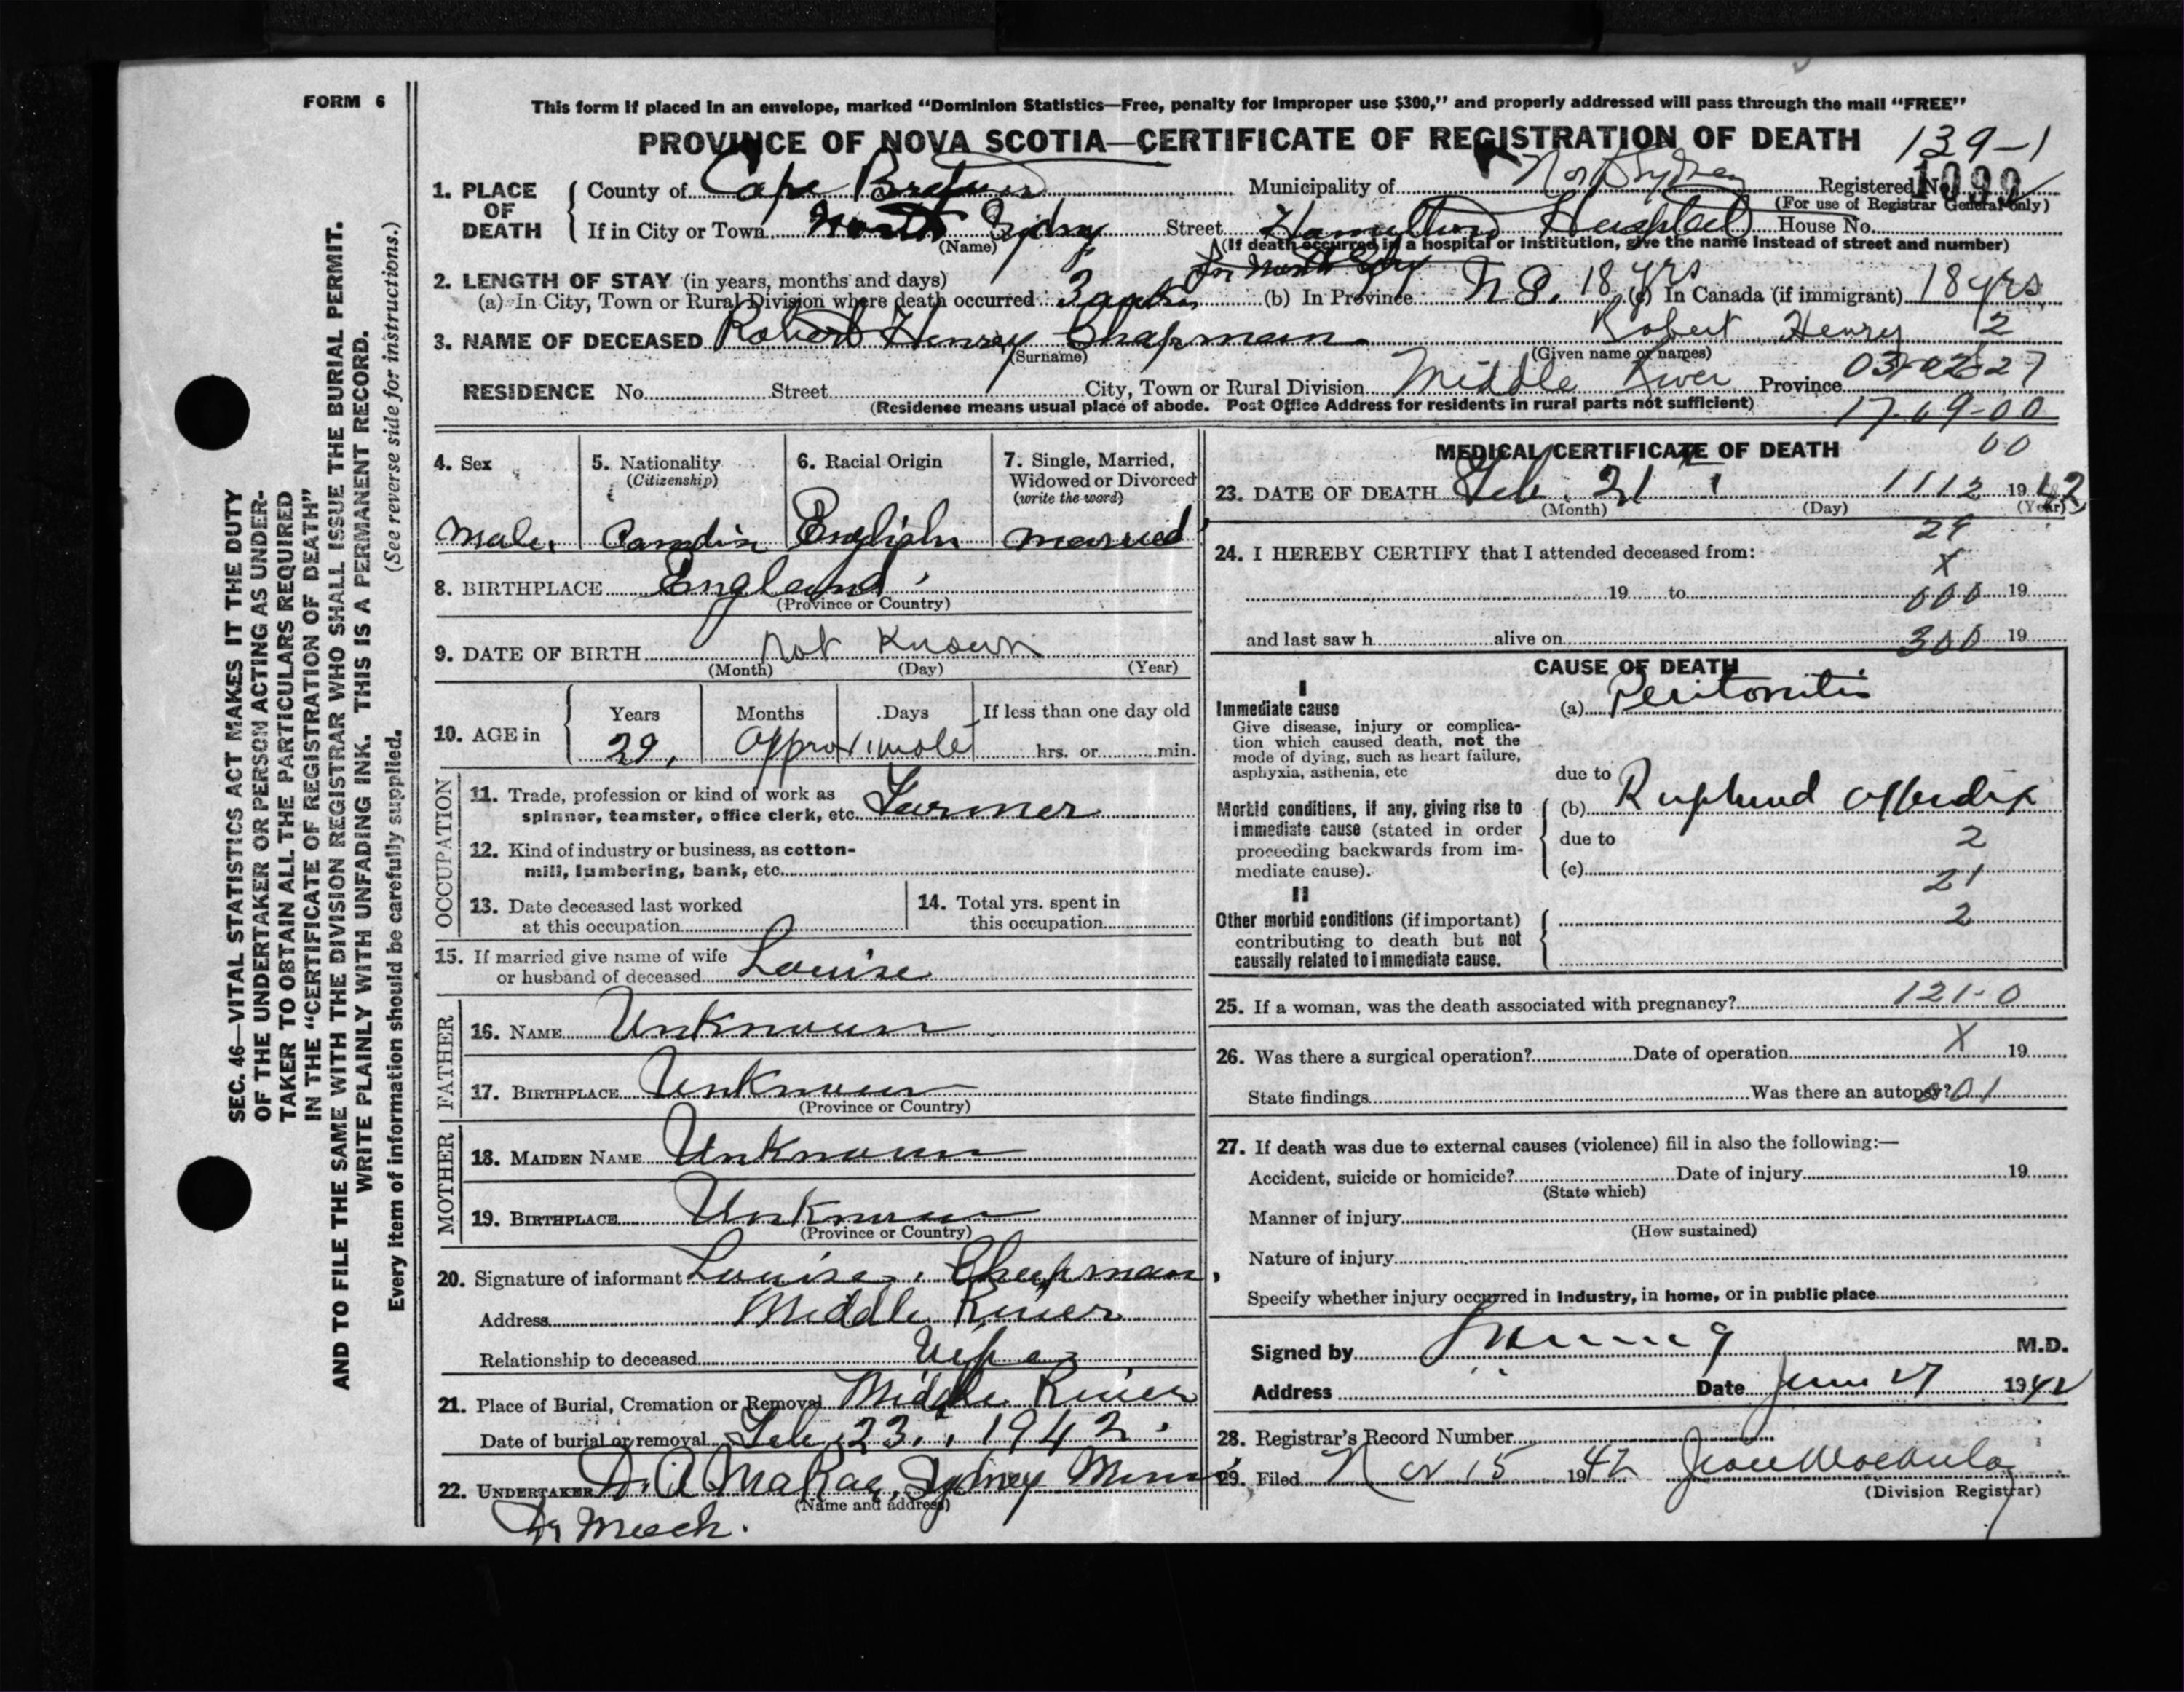 FORM 6
This form if placed in an envelope, marked “Dominion Statistics—Free, penalty for improper use $300,” and properly addressed will pass through the mail “FREE”
PROVINCE OF NOVA SCOTIA—CERTIFICATE OF REGISTRATION OF DEATH 139-1
1. PLACE OF DEATH
County of Cape Breton Municipality of North Sydney Registered No. 1090
(For use of Registrar General only)
If in City or Town North Sydney Street Hamilton Hospital House No.
(Name) (If death occurred in a hospital or institution, give the name instead of street and number)
2. LENGTH OF STAY (in years, months and days)
(a) In City, Town or Rural Division where death occurred 3 (b) In Province N.S. 18 yrs (c) In Canada (if immigrant) 18 yrs
3. NAME OF DECEASED Robert Henry Chapman Robert Henry 2
(Surname) (Given name or names)
03-02-27
RESIDENCE No. Street City, Town or Rural Division Middle River Province
(Residence means usual place of abode. Post Office Address for residents in rural parts not sufficient)
17-09-00
00
4. Sex
Male
5. Nationality
(Citizenship)
6. Racial Origin
English
7. Single, Married, Widowed or Divorced
(write the word)
married
8. BIRTHPLACE England
(Province or Country)
9. DATE OF BIRTH Not Known
(Month) (Day) (Year)
10. AGE in
Years Months Days If less than one day old
29, approximate hrs. or min.
OCCUPATION
11. Trade, profession or kind of work as
spinner, teamster, office clerk, etc. Farmer
12. Kind of industry or business, as cotton-
mill, lumbering, bank, etc.
13. Date deceased last worked
at this occupation
14. Total yrs. spent in
this occupation
15. If married give name of wife
or husband of deceased Louise
FATHER
16. NAME Unknown
17. BIRTHPLACE Unknown
(Province or Country)
MOTHER
18. MAIDEN NAME Unknown
19. BIRTHPLACE Unknown
(Province or Country)
20. Signature of informant Louise Chapman
Address Middle River
Relationship to deceased Wife
21. Place of Burial, Cremation or Removal Middle River
Date of burial or removal Feb 23, 1942
22. UNDERTAKER D. A McRae, Sydney Mines
(Name and address)
Dr Meech.
MEDICAL CERTIFICATE OF DEATH
23. DATE OF DEATH Feb. 21 1112 1942
(Month) (Day) (Year)
29
24. I HEREBY CERTIFY that I attended deceased from:
X
19 to 000 19
and last saw h alive on 300 19
CAUSE OF DEATH
I
Immediate cause
Give disease, injury or complica-
tion which caused death, not the
mode of dying, such as heart failure,
asphyxia, asthenia, etc
(a) Peritonitis
due to
Morbid conditions, if any, giving rise to
immediate cause (stated in order
proceeding backwards from im-
mediate cause).
(b) Ruptured appendix
due to 2
(c) 21
II
Other morbid conditions (if important)
contributing to death but not
causally related to immediate cause.
2
25. If a woman, was the death associated with pregnancy? 121-0
26. Was there a surgical operation? Date of operation X 19
State findings Was there an autopsy? 001
27. If death was due to external causes (violence) fill in also the following:—
Accident, suicide or homicide? Date of injury 19
(State which)
Manner of injury
(How sustained)
Nature of injury
Specify whether injury occurred in industry, in home, or in public place
Signed by M.D.
Address Date June 1942
28. Registrar's Record Number
29. Filed 15 1942
(Division Registrar)
SEC. 46—VITAL STATISTICS ACT MAKES IT THE DUTY
OF THE UNDERTAKER OR PERSON ACTING AS UNDER-
TAKER TO OBTAIN ALL THE PARTICULARS REQUIRED
IN THE “CERTIFICATE OF REGISTRATION OF DEATH”
AND TO FILE THE SAME WITH THE DIVISION REGISTRAR WHO SHALL ISSUE THE BURIAL PERMIT.
WRITE PLAINLY WITH UNFADING INK. THIS IS A PERMANENT RECORD.
Every item of information should be carefully supplied. (See reverse side for instructions.)